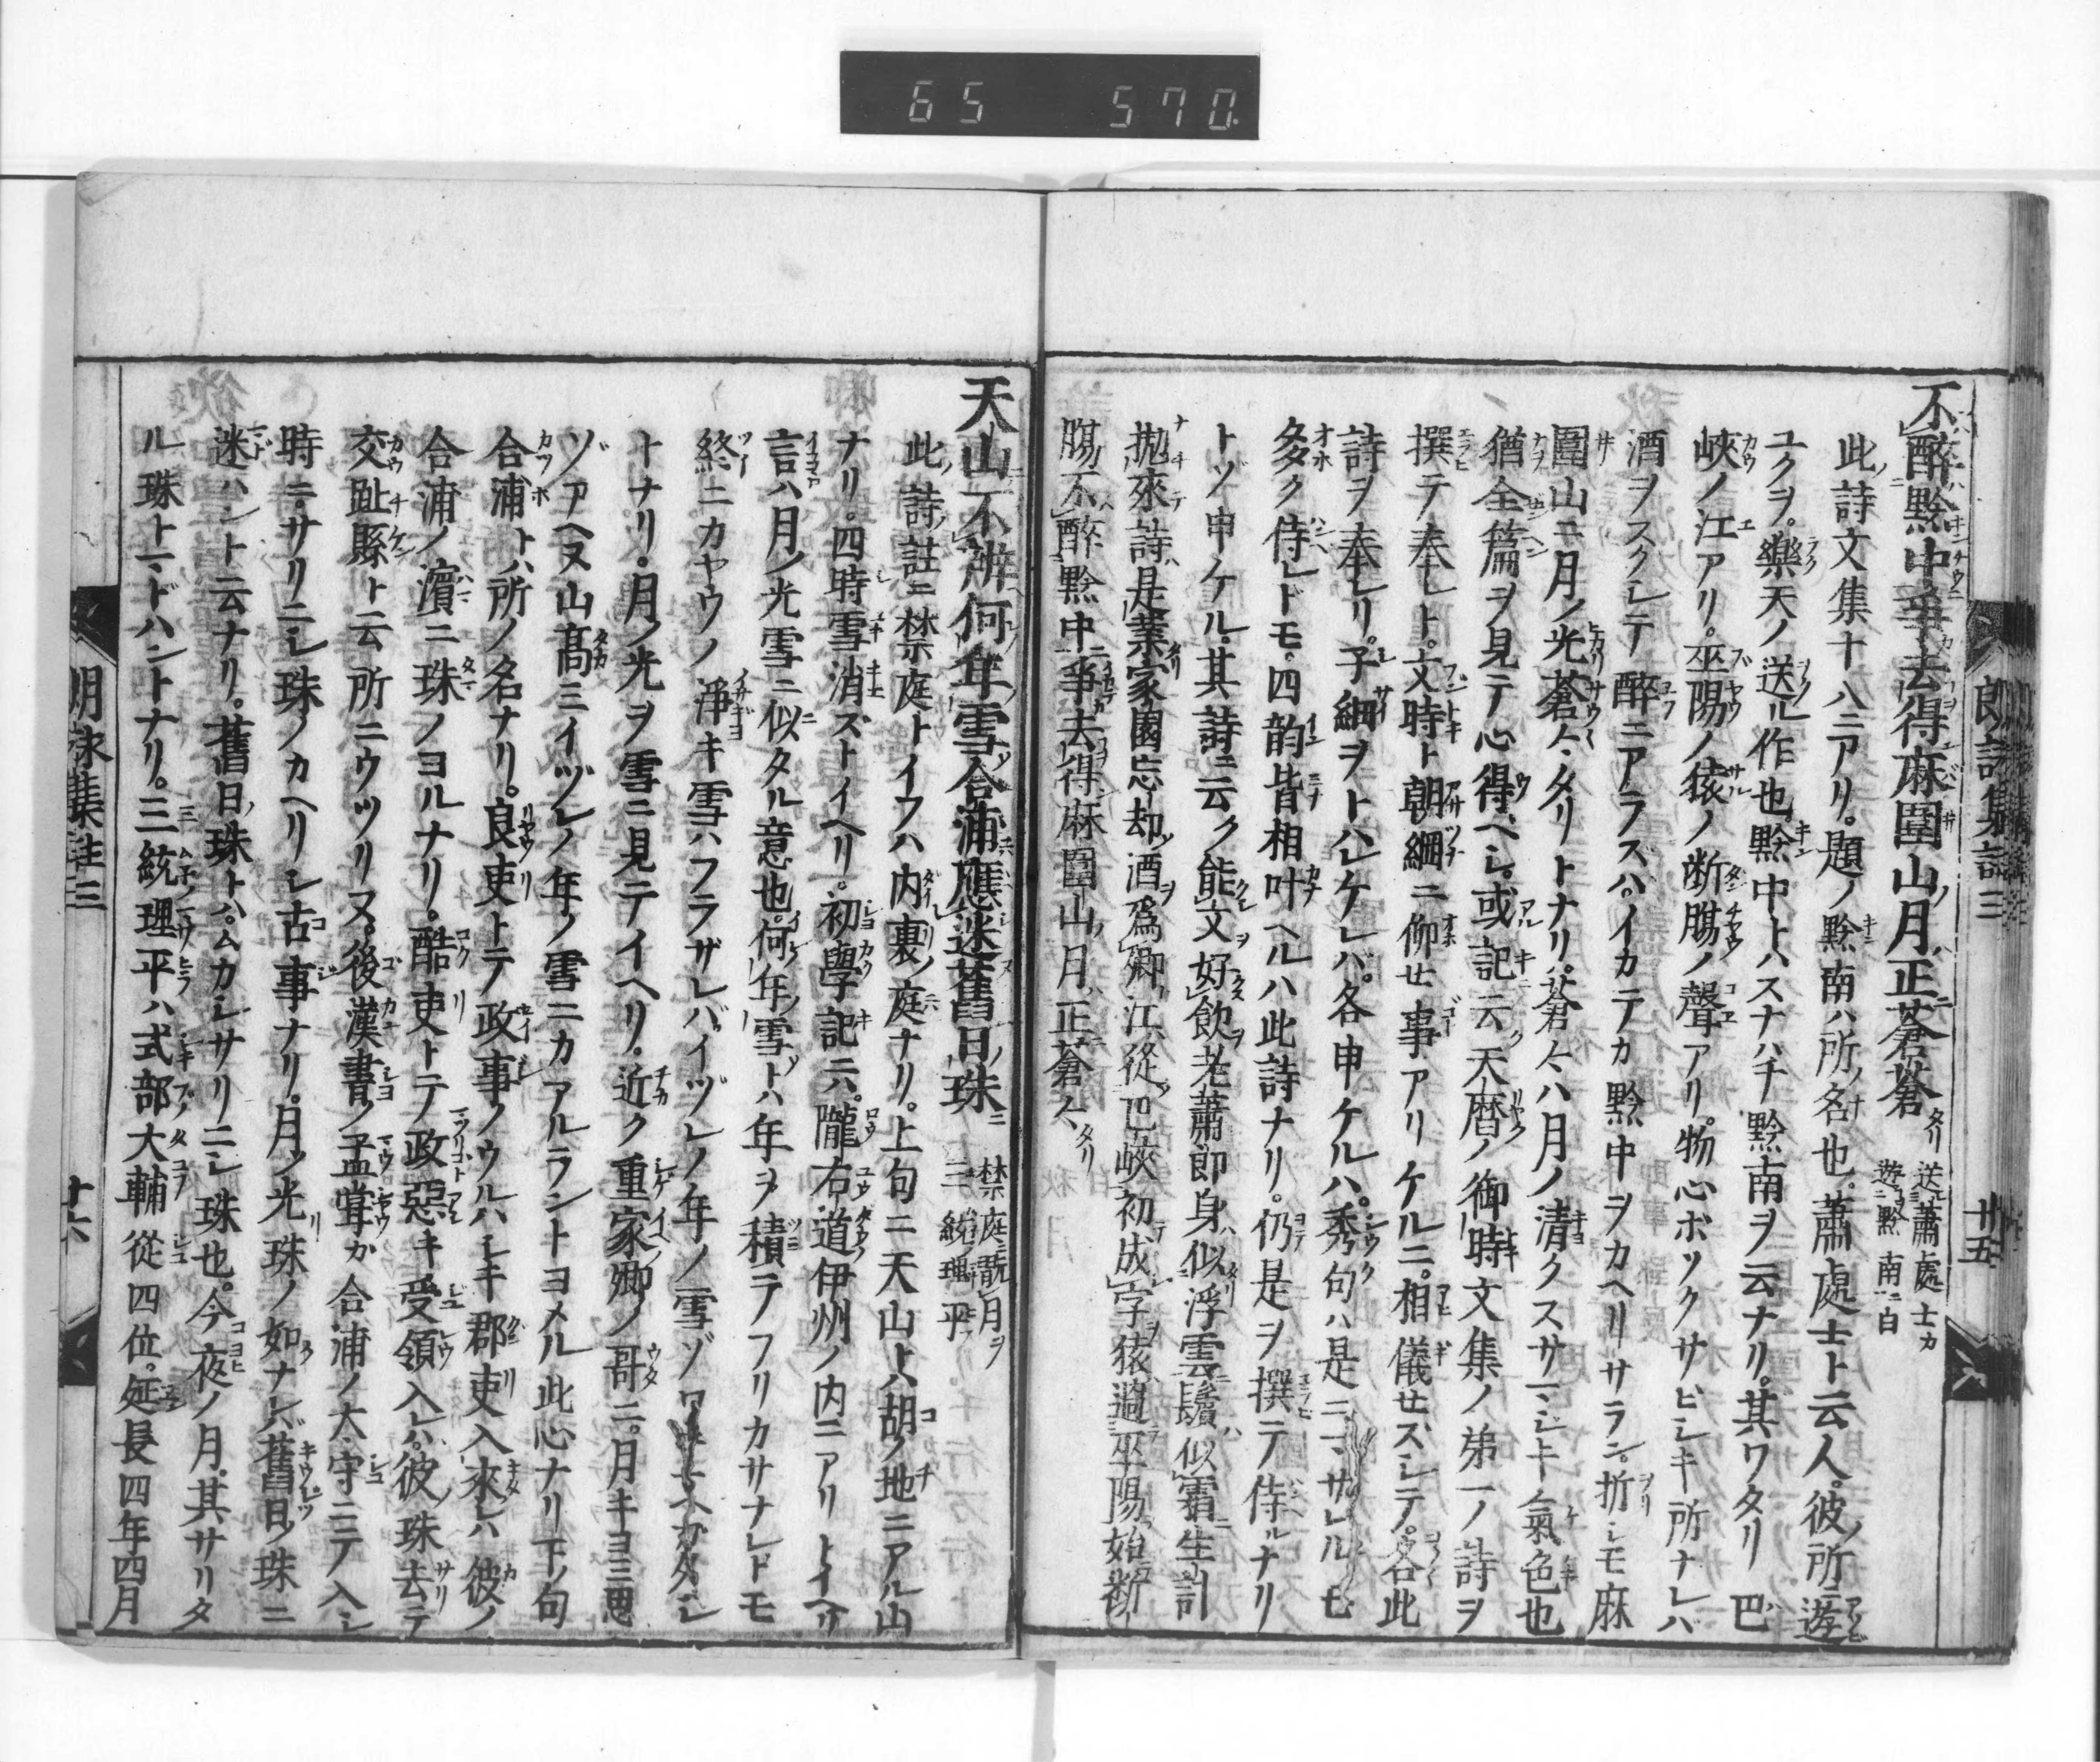 65 570
不醉黔中爭去得麻圍山月正蒼蒼 送蕭處士カ遊黔南 白
此詩文集十八ニアリ。題ノ黔南ハ所ノ名也。蕭處士ト云人。彼所ニ遊
ユクヲ。樂天ノ送ル作也。黔中トハスナハチ黔南ヲ云ナリ。其ワタリ巴
峽ノ江アリ。巫陽ノ猿ノ断腸ノ聲アリ。物心ボソクサビシキ所ナレバ
酒ヲスクシテ醉ニアラズハ。イカテカ黔中ヲカヘリサラン。折シモ麻
圍山ニ月ノ光蒼々タリトナリ。蒼々ハ月ノ清クスサマジキ氣色也
猶全篇ヲ見テ心得ベシ。或記云天暦ノ御時文集ノ弟一ノ詩ヲ
撰テ奉レト。文時ト朝綱ニ仰せ事アリケルニ。相儀せズシテ。各此
詩ヲ奉レリ。子細ヲトハレケレバ。各申ケルハ。秀句ハ是ニマサレルモ
多ク侍レドモ。四韵皆相叶ヘルハ此詩ナリ。仍是ヲ撰テ侍ルナリ
トゾ申ケル。其詩ニ云ク能文好飲老蕭郎身似浮雲鬢似霜生計
抛來詩是業家園忘却酒爲卿江從巴峽初成字猿過巫陽始断
腸不醉黔中爭去得麻圍山月正蒼々
郎詠集註三 廿五
天山不辨何年雪合浦應迷舊日珠 禁庭翫月ヲ 三統理平
此詩註ニ禁庭トイフハ内裏ノ庭ナリ。上句ニ天山トハ胡ノ地ニアル山
ナリ。四時雪消ズトイヘリ。初學記云。隴右道伊州ノ内ニアリトイヘリ
言ハ月ノ光雪ニ似タル意也。何年雪トハ年ヲ積テフリカサナレドモ
終ニカヤウノ淨キ雪ハフラザレバイヅレノ年ノ雪ゾワキマヘガタシ
トナリ。月ノ光ヲ雪ニ見テイヘリ。近ク重家卿ノ哥ニ。月キヨミ思
ゾアヘヌ山髙ミイヅレノ年ノ雪ニカアルラントヨメル此心ナリ下ノ句
合浦トハ所ノ名ナリ。良吏トテ政事ノウルハシキ郡吏入來レハ彼ノ
合浦ノ濱ニ珠ノヨルナリ。酷吏トテ政惡キ受領入レハ。彼珠去テ
交趾縣ト云所ニウツリヌ。後漢書ノ孟甞カ合浦ノ太守ニテ入シ
時ニ。サリニシ珠ノカヘリシ古事ナリ。月ノ光珠ノ如ナレバ舊日ノ珠ニ
迷ハント云ナリ。舊日ノ珠トハ。ムカシサリニシ珠也。今夜ノ月。其サリタ
ル珠トマドハントナリ。三統理平ハ式部大輔從四位。延長四年四月
朗詠集註三 十六